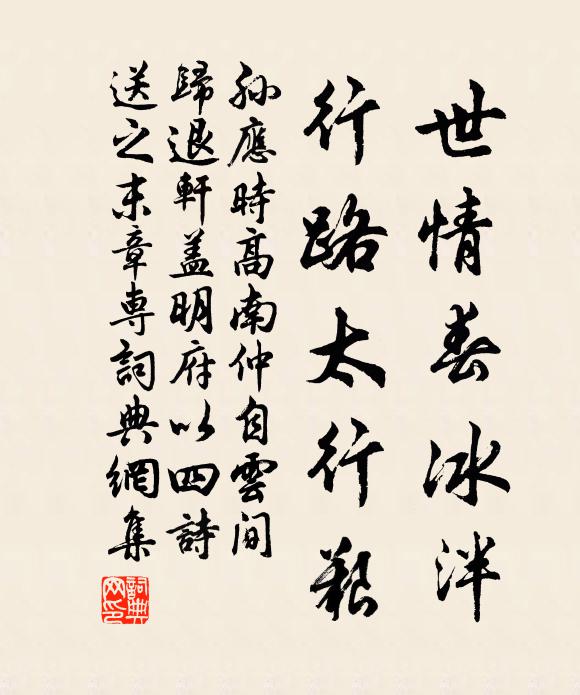 世情春冰泮
行路太行艱
孫應時高南仲自雲间
歸退軒盖明府以四詩
送之末章専詞典網集
詞典網印